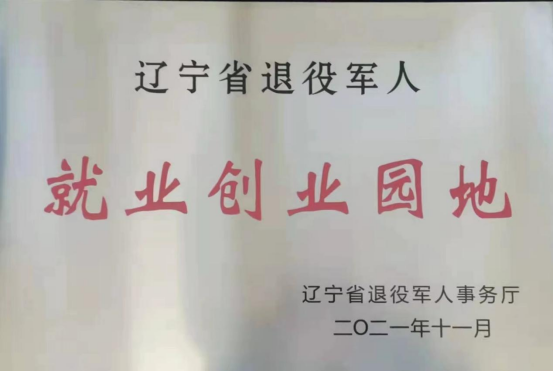 辽宁省退役军人
就业创业园地
辽宁省退役军人事务厅
二〇二一年十一月